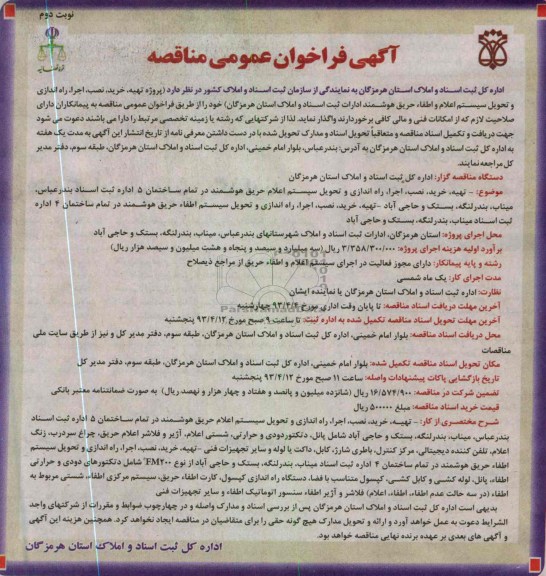 نوبت دوم
آگهی فراخوان عمومی مناقصه
اداره کل ثبت اسناد و املاک استان هرمزگان به نمایندگی از سازمان ثبت اسناد و املاک کشور در نظر دارد (پروژه تهیه، خرید، نصب، اجرا، راه اندازی
و تحویل سیستم اعلام و اطفاء حریق هوشمند ادارات ثبت اسناد و املاک استان هرمزگان) خود را از طریق فراخوان عمومی مناقصه به پیمانکاران دارای
صلاحیت لازم که از امکانات فنی و مالی کافی برخوردارند واگذار نماید. لذا از شرکتهایی که رشته یا زمینه تخصصی مرتبط را دارا می باشند دعوت می شود
جهت دریافت و تکمیل اسناد مناقصه و متعاقباً تحویل اسناد و مدارک تحویل شده با در دست داشتن معرفی نامه از تاریخ انتشار این آگهی به مدت یک هفته
به اداره کل ثبت اسناد و املاک استان هرمزگان به آدرس: بندرعباس، بلوار امام خمینی، اداره کل ثبت اسناد و املاک استان هرمزگان، طبقه سوم، دفتر مدیر
کل مراجعه نمایند.
دستگاه مناقصه گزار: اداره کل ثبت اسناد و املاک استان هرمزگان
موضوع: - تهیه، خرید، نصب، اجرا، راه اندازی و تحویل سیستم اعلام حریق هوشمند در تمام ساختمان ۵ اداره ثبت اسناد بندرعباس،
میناب، بندرلنگه، بستک و حاجی آباد -تهیه، خرید، نصب، اجرا، راه اندازی و تحویل سیستم اطفاء حریق هوشمند در تمام ساختمان ۴ اداره
ثبت اسناد میناب، بندرلنگه، بستک و حاجی آباد
محل اجرای پروژه: استان هرمزگان، ادارات ثبت اسناد و املاک شهرستانهای بندرعباس، میناب، بندرلنگه، بستک و حاجی آباد
برآورد اولیه هزینه اجرای پروژه: ۳/۳۵۸/۳۰۰/۰۰۰ ریال (سه میلیارد و سیصد و پنجاه و هشت میلیون و سیصد هزار ریال)
رشته و پایه پیمانکار: دارای مجوز فعالیت در اجرای سیستم اعلام و اطفاء حریق از مراجع ذیصلاح
مدت اجرای کار: یک ماه شمسی
نظارت: اداره ثبت اسناد و املاک استان هرمزگان یا نماینده ایشان
آخرین مهلت دریافت اسناد مناقصه: تا پایان وقت اداری مورخ ۹۳/۴/۴ چهارشنبه
آخرین مهلت تحویل اسناد مناقصه تکمیل شده به اداره ثبت: تا ساعت ۹ صبح مورخ ۹۳/۴/۱۲ پنجشنبه
محل دریافت اسناد مناقصه: بلوار امام خمینی، اداره کل ثبت اسناد و املاک استان هرمزگان، طبقه سوم، دفتر مدیر کل و نیز از طریق سایت ملی
مناقصات
مکان تحویل اسناد مناقصه تکمیل شده: بلوار امام خمینی، اداره کل ثبت اسناد و املاک استان هرمزگان، طبقه سوم، دفتر مدیر کل
تاریخ بازگشایی پاکات پیشنهادات واصله: ساعت ۱۱ صبح مورخ ۹۳/۴/۱۲ پنجشنبه
تضمین شرکت در مناقصه: ۱۶/۵۷۴/۹۰۰ ریال (شانزده میلیون و پانصد و هفتاد و چهار هزار و نهصد ریال) به صورت ضمانتنامه معتبر بانکی
قیمت خرید اسناد مناقصه: مبلغ ۵۰۰۰۰۰ ریال
شرح مختصری از کار: - تهیه، خرید، نصب، اجرا، راه اندازی و تحویل سیستم اعلام حریق هوشمند در تمام ساختمان ۵ اداره ثبت اسناد
بندرعباس، میناب، بندرلنگه، بستک و حاجی آباد شامل پانل، دتکتور دودی و حرارتی، شستی اعلام، آژیر و فلاشر اعلام حریق، چراغ سردرب، زنگ
اعلام، تلفن کننده دیجیتالی، مرکز کنترل، باطری شارژ، کابل، داکت یا لوله و سایر تجهیزات فنی -تهیه، خرید، نصب، اجرا، راه اندازی و تحویل سیستم
اطفاء حریق هوشمند در تمام ساختمان ۴ اداره ثبت اسناد میناب، بندرلنگه، بستک و حاجی آباد از نوع FM۲۰۰ شامل دتکتورهای دودی و حرارتی
اطفاء، پانل، لوله کشی و کابل کشی، کپسول متناسب با فضا، دستگاه راه اندازی کپسول، کارت اطفاء حریق، سیستم مرکزی اطفاء، شستی مربوط به
اطفاء (در سه حالت عدم اطفاء، اطفاء، اعلام) فلاشر و آژیر اطفاء سنسور اتوماتیک اطفاء و سایر تجهیزات فنی
بدیهی است اداره کل ثبت اسناد و املاک استان هرمزگان پس از بررسی اسناد و مدارک واصله و در چهارچوب ضوابط و مقررات از شرکتهای واجد
الشرایط دعوت به عمل خواهد آورد و ارائه و تحویل مدارک هیچ گونه حقی را برای متقاضیان در مناقصه ایجاد نخواهد کرد. همچنین هزینه این آگهی
و آگهی های بعدی بر عهده برنده نهایی مناقصه خواهد بود.
اداره کل ثبت اسناد و املاک استان هرمزگان